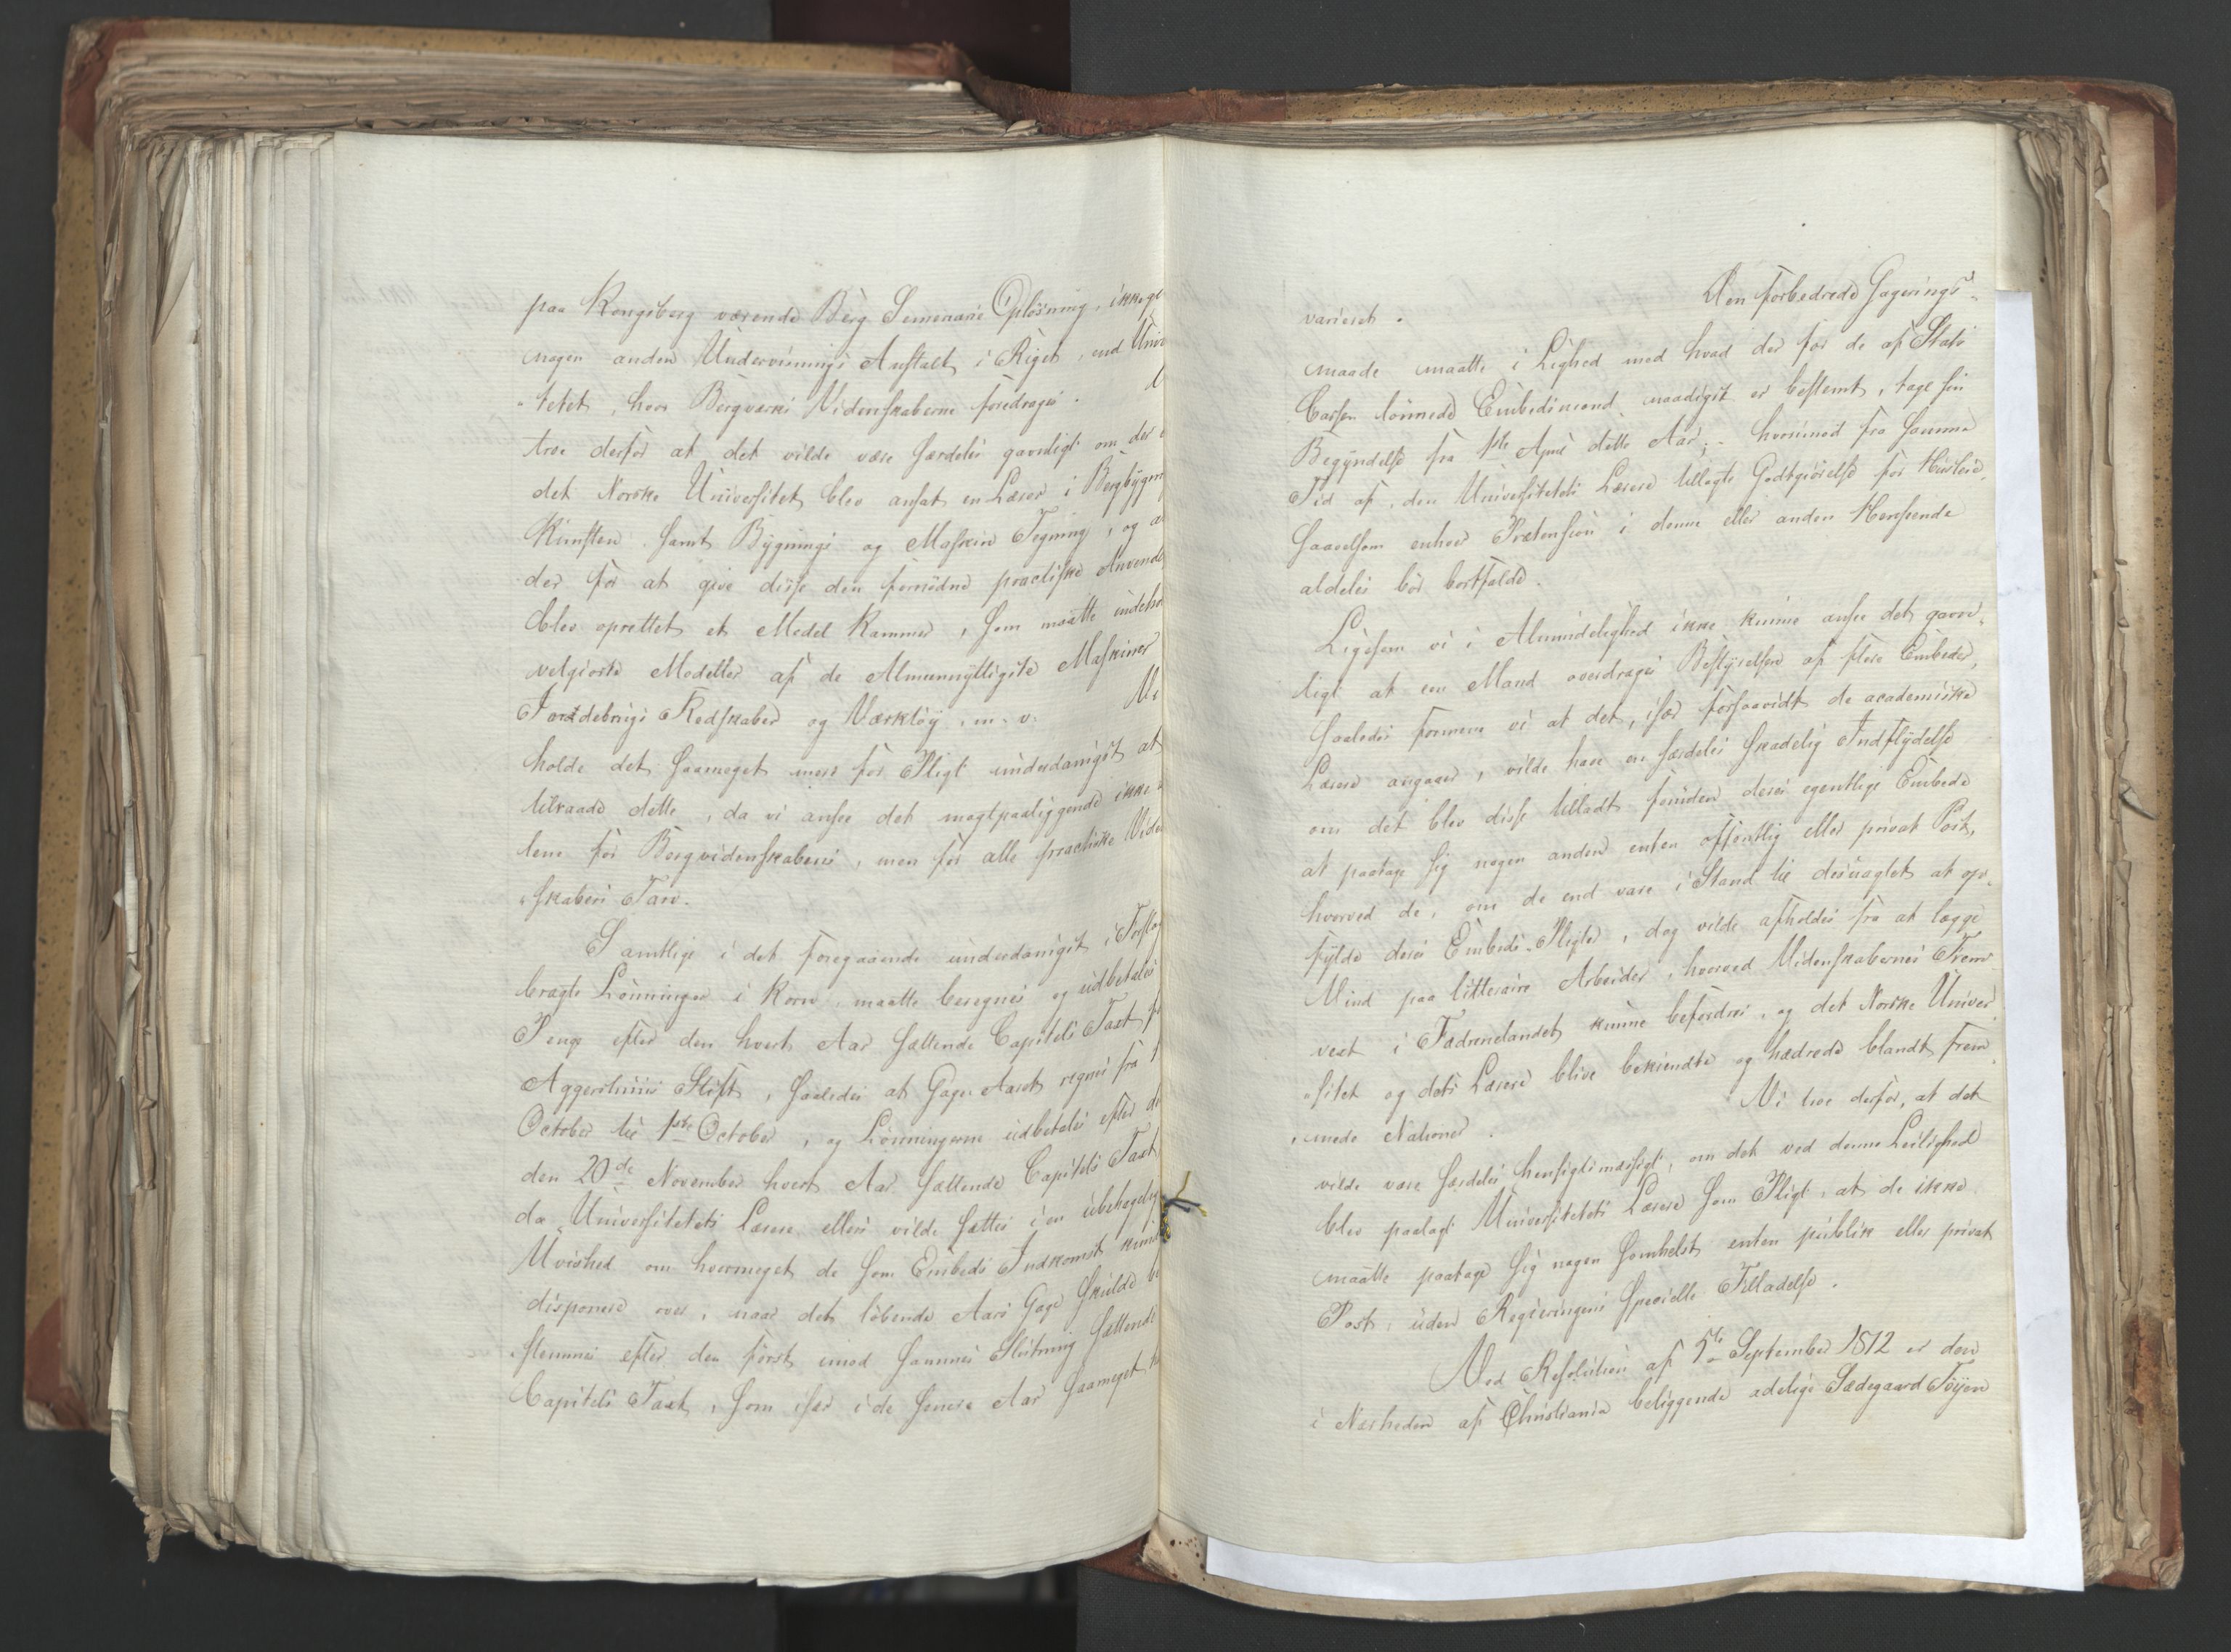 paa Kongsberg værende Berg Semenarie Opløsning, ikke
nogen anden Underviisnings Anstalt i Riget, end Univ
"tetet, hvor Bergværks Videnskaberne foredrages.
troe derfor at det vilde være særdeles gavnligt om der
det Norske Universitet blev ansat en Lærer i Bergbygn
Kunsten samt Bygnings og Maskin Tegning, og a
der for at give disse den fornødne practiske Anvende
blev oprettet et Model Kammer, som maatte indeho
velgiorte Modeller af de Almeennyttigste Maskiner
Jorddebrugs Redskaber og Værktøy, m. v. Vi
holde det saameget meer for Pligt underdanigst at
tilraade dette, da vi ansee det magtpaaliggende ikke
lene for Bergvidenskabens, men for alle practiske Viden
"skabers Tarv.
Samtlige i det foregaaende underdanigst i Forslag
bragte Lønninger i Korn, maatte beregnes og udbetales
Penge efter den hvert Aar sættende Capitels Taxt f
Aggershuus Stift, saaledes at Gage-Aaret regnes fra 1
October til 1ste October, og Lønningerne udbetales efter d
den 20de November hvert Aar sættende Capitels Taxt,
da Universitetets Lærere ellers vilde sættes i en ubehagelig
Uvished om hvormeget de som Embeds Indkomst kund
disponere over, naar det løbende Aars Gage skulde be
"stemmes efter den først imod sammes Slutning sættende
Capitels Taxt, som især i de senere Aar saameget h
varieret. Den forbedrede Gagerings-
maade maatte i Lighed med hvad der for de af Stats
Cassen lønnede Embedsmænd naadigst er bestemt, tage sin
Begyndelse fra 1ste April dette Aar; hvorimod fra samme
Tid af, den Universitetets Lærere tillagte Godtgiørelse for Huusleie,
saavelsom enhver Prætension i denne eller anden Henseende
aldeles bør bortfalde.
Ligesom vi i Almindelighed ikke kunne ansee det gavn-
ligt at een Mand overdrages Bestyrelsen af flere Embeder,
saaledes formene vi at det, især forsaavidt de academiske
Lærere angaaer, vilde have en særdeles skadelig Indflydelse
om det blev disse tilladt foruden deres egentlige Embede
at paatage sig nogen anden enten offentlig eller privat Post,
hvorved de, om de end vare i Stand til desuagtet at op-
fylde deres Embeds-Pligter, dog vilde afholdes fra at lægge
Vind paa litteraire Arbeider, hvorved Videnskabernes Frem-
vext i Fædrenelandet kunne befordres, og det Norske Univer-
"sitet og dets Lærere blive bekiendte og hædrede blandt frem-
"mede Nationer. Vi troe derfor, at det
vilde være særdeles hensigtsmæssigt, om det ved denne Leilighed
blev paalagt Universitetets Lærere som Pligt, at de ikke
maatte paatage sig nogen somhelst enten publik eller privat
Post, uden Regieringens specielle Tilladelse.
Ved Resolution af 5te September 1812 er den
i Nærheden af Christiania beliggende adelige Sædegaard Tøyen